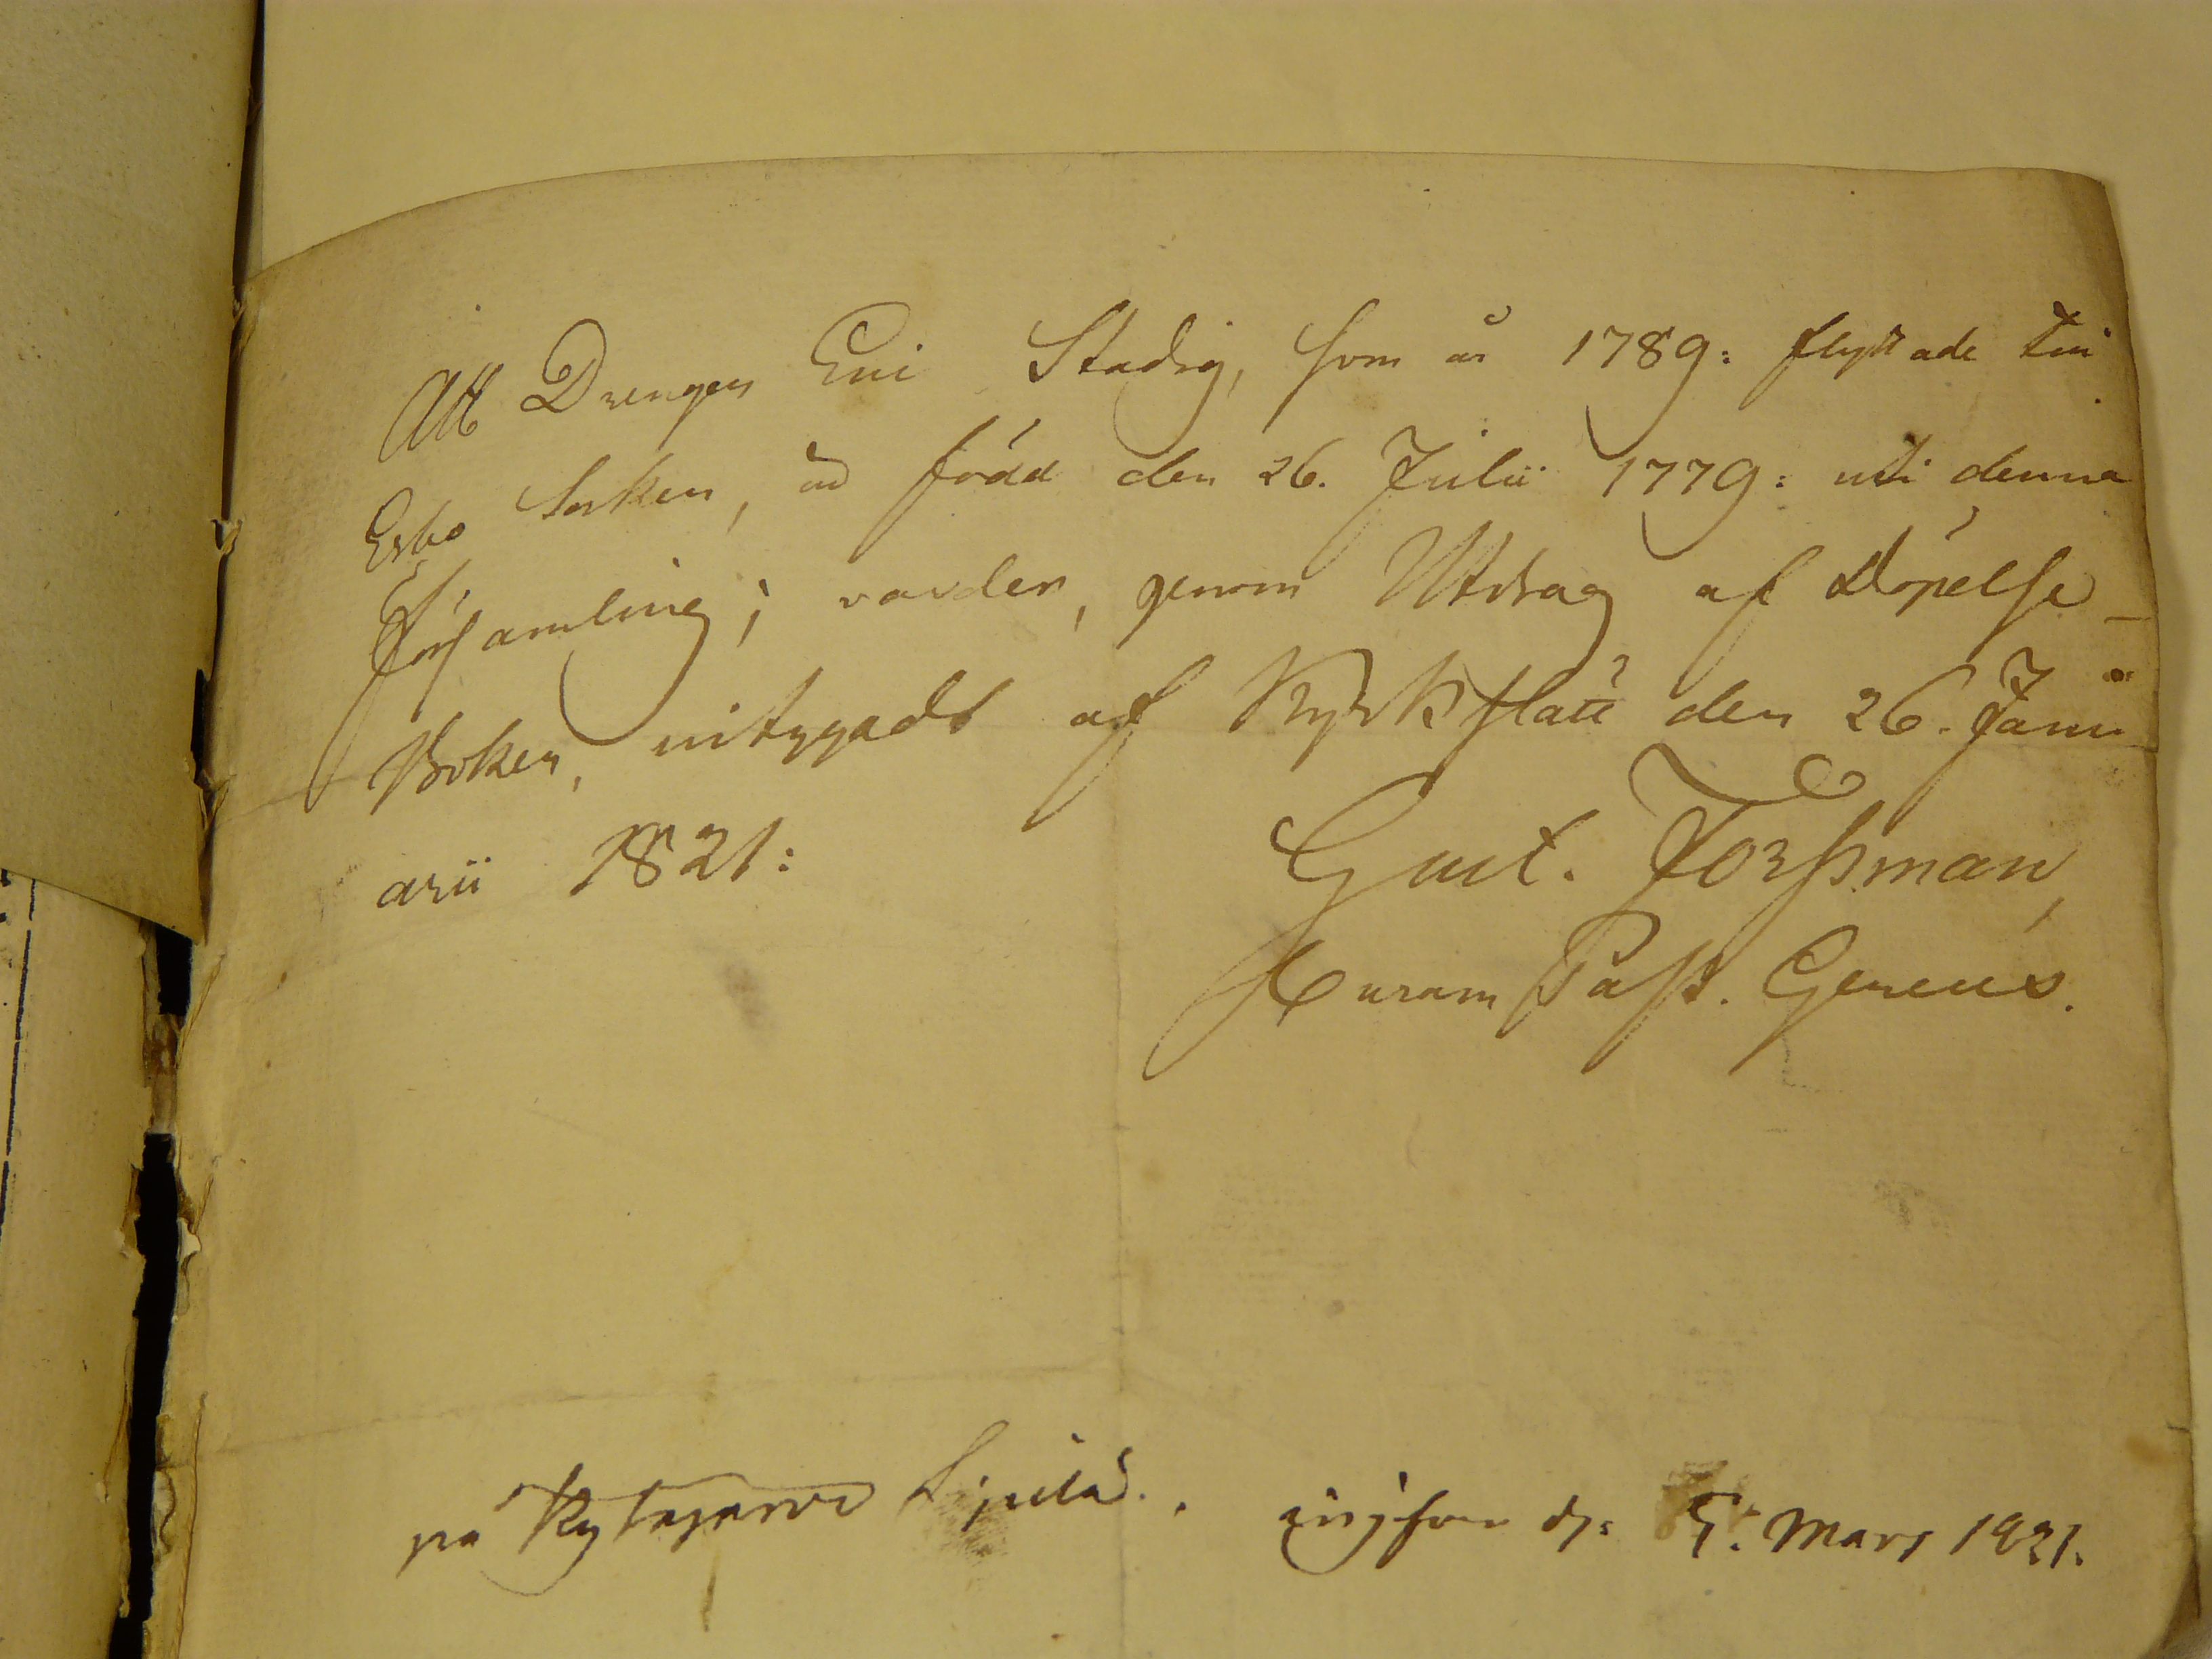 Att Drengen Eric Stadig, som år 1789: flyttade till
Esbo Socken, är född den 26. Julii 1779: uti denna
Församling; varder, genom Utdrag af Döpelse-
Boken, witnadt af Kyrkslätt den 26. Janu
arii 1821:
Gust. Forssman,
Curam Past. Gerens.
på Kytäjärvi d: 5. Mars 1821.